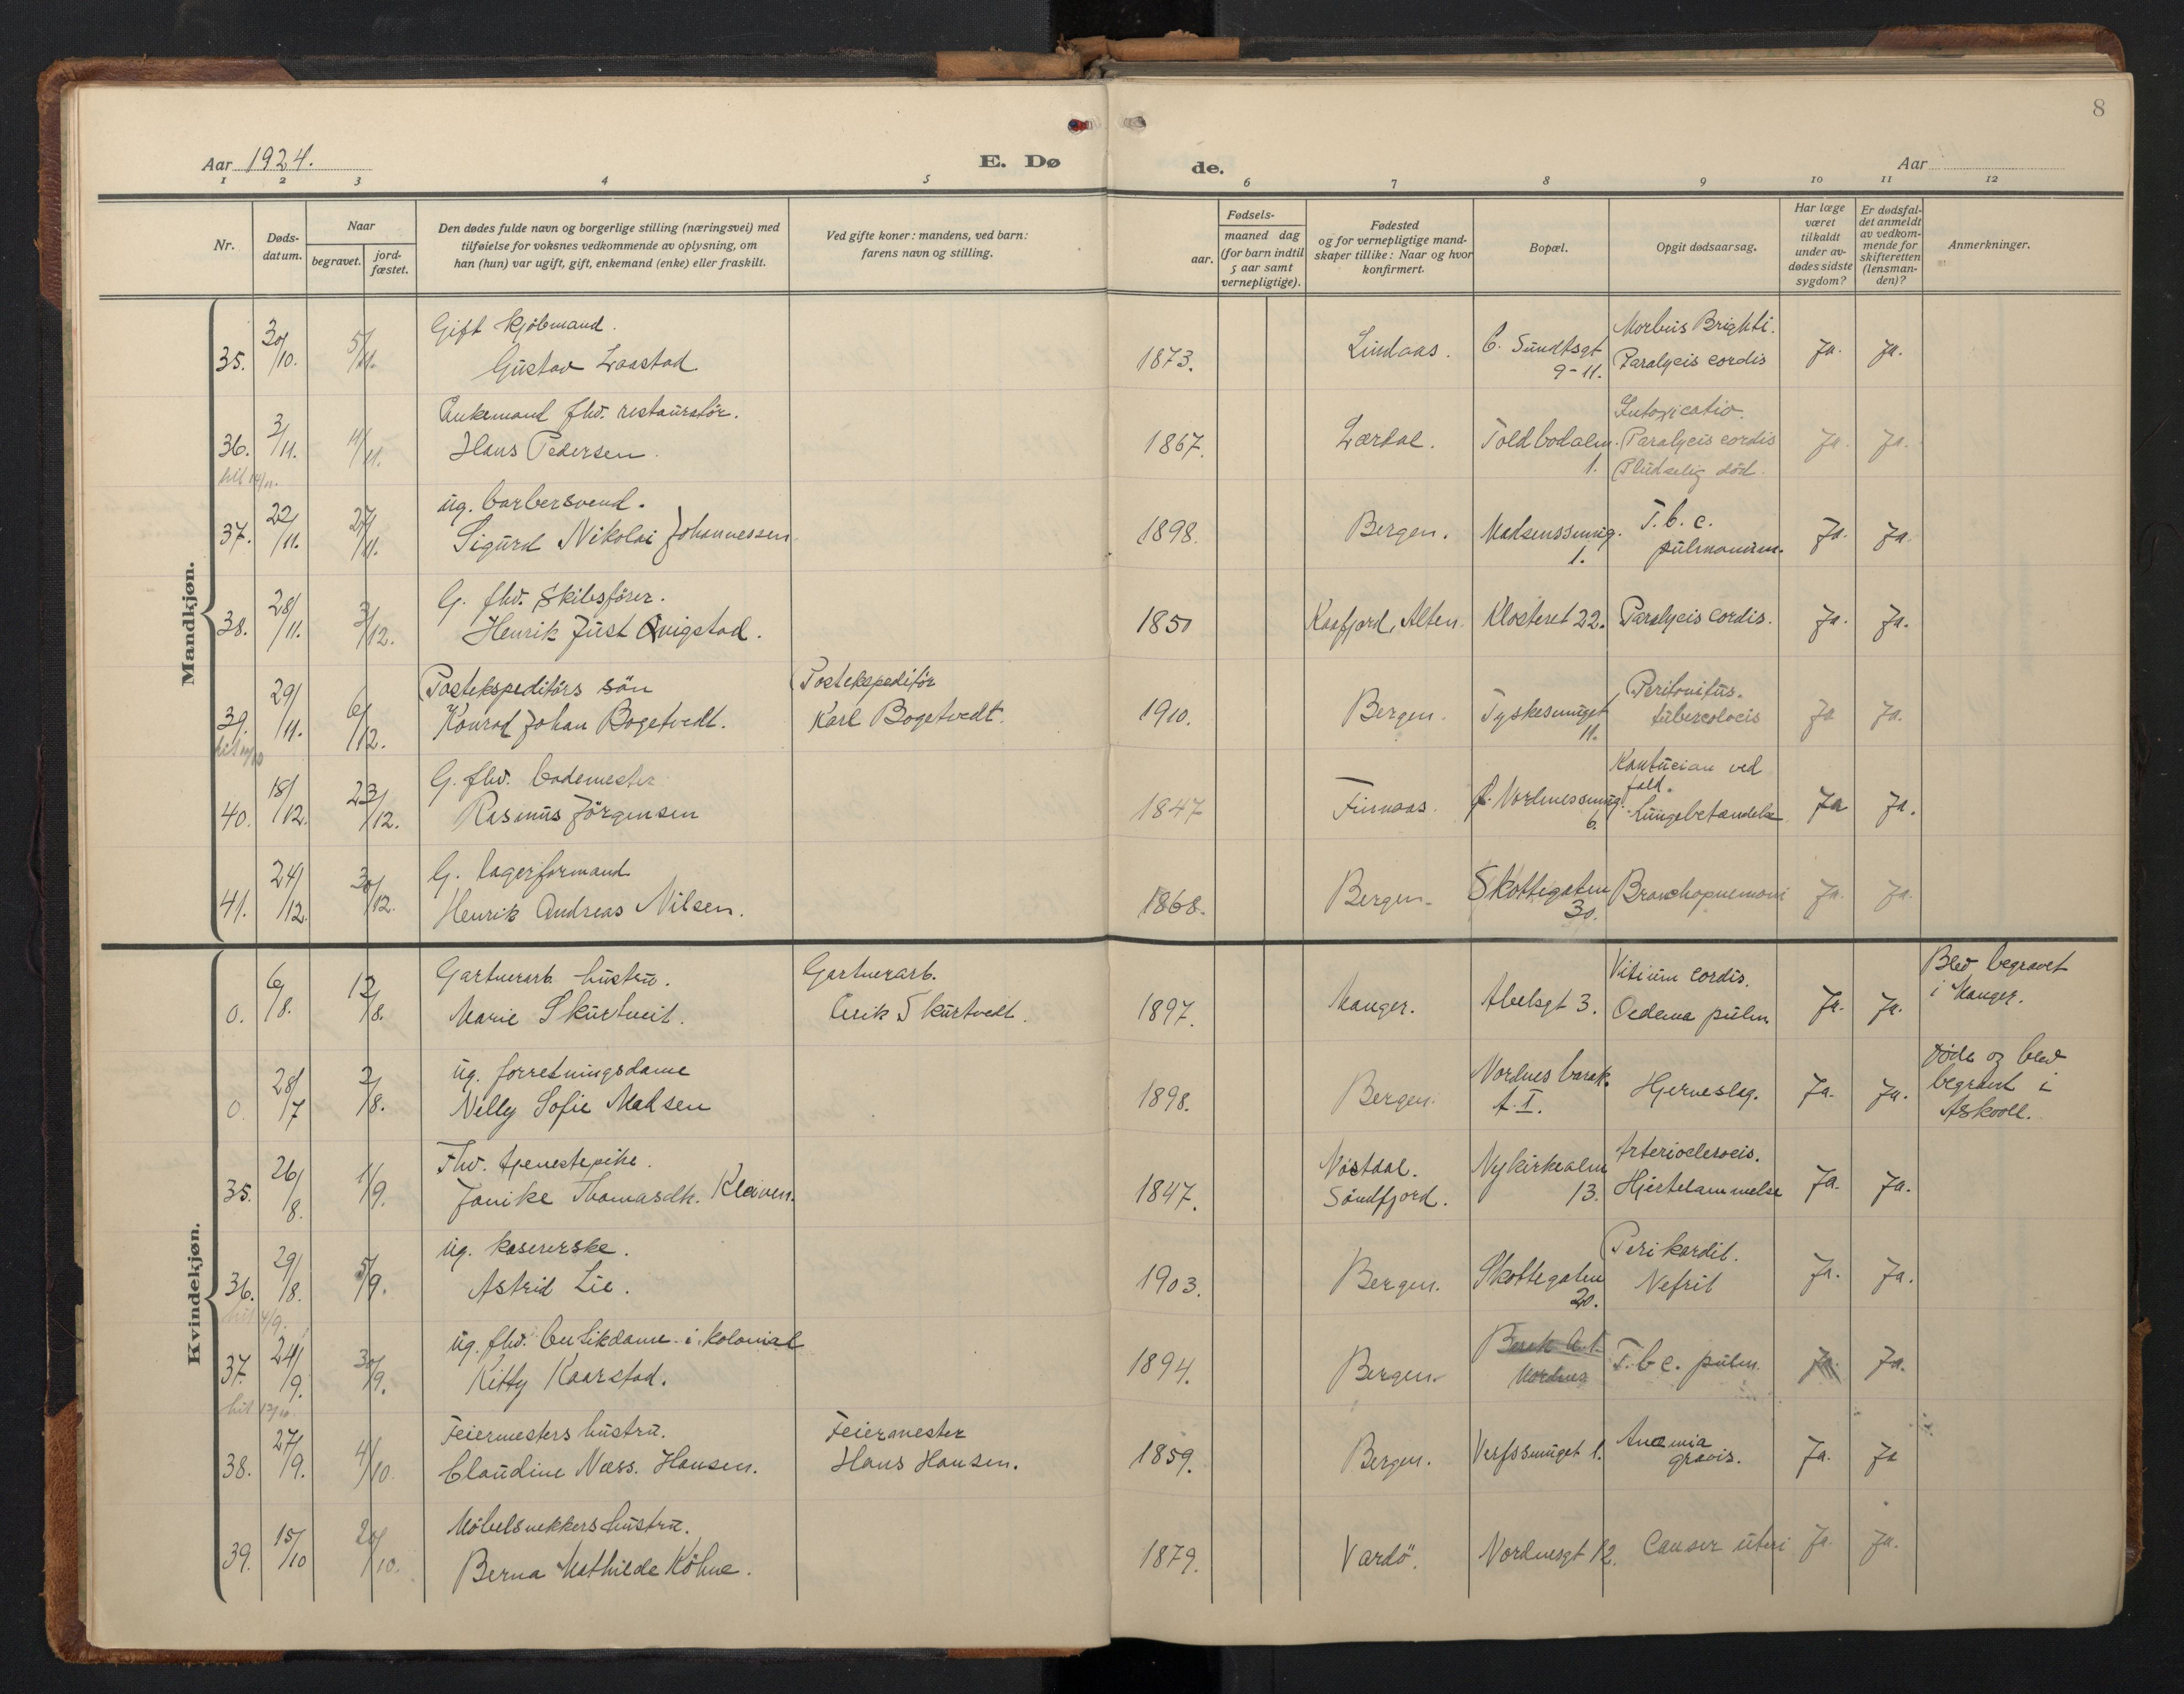 8
Aar 1924.
E. Dø
de.
Aar
1 2 3 4 5 6 7 8 9 10 11 12
Nr.
Døds-
datum.
Naar
begravet.
jord-
fæstet.
Den dødes fulde navn og borgerlige stilling (næringsvei) med
tilføielse for voksnes vedkommende av oplysning, om
han (hun) var ugift, gift, enkemand (enke) eller fraskilt.
Ved gifte koner: mandens, ved barn:
farens navn og stilling.
Fødsels-
aar.
maaned dag
(for barn indtil
5 aar samt
vernepligtige).
Fødested
og for vernepligtige mand-
skaper tillike: Naar og hvor
konfirmert.
Bopæl.
Opgit dødsaarsag.
Har læge
været
tilkaldt
under av-
dødes sidste
sygdom?
Er dødsfal-
det anmeldt
av vedkom-
mende for
skifteretten
(lensman-
den)?
Anmerkninger.
Mandkjøn.
35. 30/10. 5/11.
Gift kjøbmand.
Gustav Laastad
1873. Lindaas.
C. Sundtsgt
9-11.
Morbus Brighti.
Paralycis cordis
Ja. Ja.
36. 3/11. 11/11.
Enkemand fhv. restauratör.
Hans Pedersen.
1867. Lærdal.
Toldbodalm.
1.
Intoxicatio.
Paralycis cordis
Pludselig död.
Ja. Ja.
37. 22/11. 27/11.
ug. barbersvend.
Sigurd Nikolai Johannessen
1898. Bergen.
Madsenssmug.
1.
T.b.c.
pulmonum.
Ja. Ja.
38. 28/11. 3/12.
G. fhv. Skibsförer.
Henrik Just Qvigstad.
1850 Kaafjord, Alten. Klosteret 22. Paralycis cordis. Ja. Ja.
39. 29/11. 6/12.
Postekspeditörs sön
Konrad Johan Bogetvedt.
Postekspeditör
Karl Bogetvedt.
1910. Bergen.
Tyskesmuget
11.
Peritonitus.
tubercolocis
Ja Ja.
40. 18/12. 23/12.
G. fhv. bademester
Rasmus Jörgensen
1847 Finnaas.
Nordnessmug.
6.
Kontucian ved
fald.
Lungebetændelse
Ja Ja.
41. 24/12. 30/12.
G. lagerformand.
Henrik Andreas Nilsen.
1868. Bergen.
Skottegaten
30.
Bronchopnemoni
Ja. Ja.
Kvindekjøn.
0. 6/8. 12/8.
Gartnerarb. hustru.
Marie Skurtveit.
Gartnerarb.
Erik Skurtvedt.
1897. Manger. Abelsgt 3.
Vitium cordis.
Oedema pulm.
Ja. Ja.
Blev begravet
i Manger.
0. 28/7 2/8.
ug. forretningsdame
Nelly Sofie Madsen
1898. Bergen.
Nordnes barak.
A.I.
Hjerneslag.
Ja. Ja.
Döde og blev
begravet i
Askvoll.
35. 26/8. 1/9.
Fhv. tjenestepike.
Janike Thomasdtr. Kleiven.
1847.
Söndfjord.
Nykirkealm
13.
Arterioclerocis.
Hjertelammelse
Ja. Ja.
36. 29/8. 5/9.
ug. kasererske.
Astrid Lie.
1903. Bergen.
Skottegaten
20.
Perikardit.
Nefrit
Ja. Ja.
37. 24/9. 30/9.
ug. fhv. butikdame i kolonial
Kitty Kaarstad.
1894. Bergen.
Barak A.1.
Nordnes
T.b.c. pulm.
Ja. Ja.
38. 27/9. 4/10.
Feiermesters hustru.
Claudine Næss. Hansen.
Feiermester
Hans Hansen.
1859. Bergen. Verfssmuget 1.
Anæmia
gravis.
Ja. Ja
39. 15/10 20/10.
Møbelsnekkers hustru.
Berna Mathilde Köhne.
1879. Vardö. Nordnesgt 12. Canser uteri Ja. Ja.